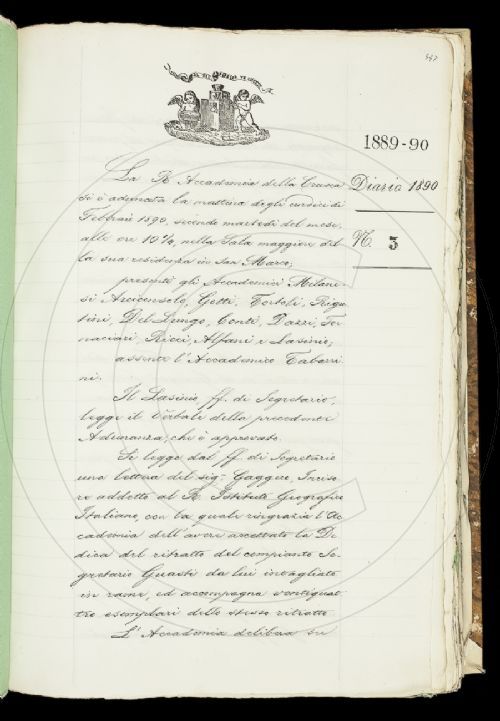 1889-90
Diario 1890
N. 3
La R. Accademia della Crusca
si è adunata la mattina degli undici di
Febbraio 1890, secondo martedì del mese,
alle ore 10 ½, nella Sala maggiore del
la sua residenza in San Marco;
presenti gli Accademici Milane
si Arciconsolo, Gotti, Tortoli, Rigu
tini, Del Lungo, Conti, Dazzi, For
naciari, Ricci, Alfani e Lasinio;
assente l'Accademico Tabarri
ni.
Il Lasinio, ff. di Segretario,
legge il Verbale della precedente
Adunanza, che è approvato.
Si legge dal ff. di Segretario
una lettera del sig. Gaggero, Inciso
re addetto al R. Istituto Geografico
Italiano, con la quale ringrazia l'Ac
cademia dell'avere accettato la De
dica del ritratto del compianto Se-
gretario Guasti da lui intagliato
in rame, ed accompagna ventiquat
tro esemplari dello stesso ritratto.
L'Accademia delibera su